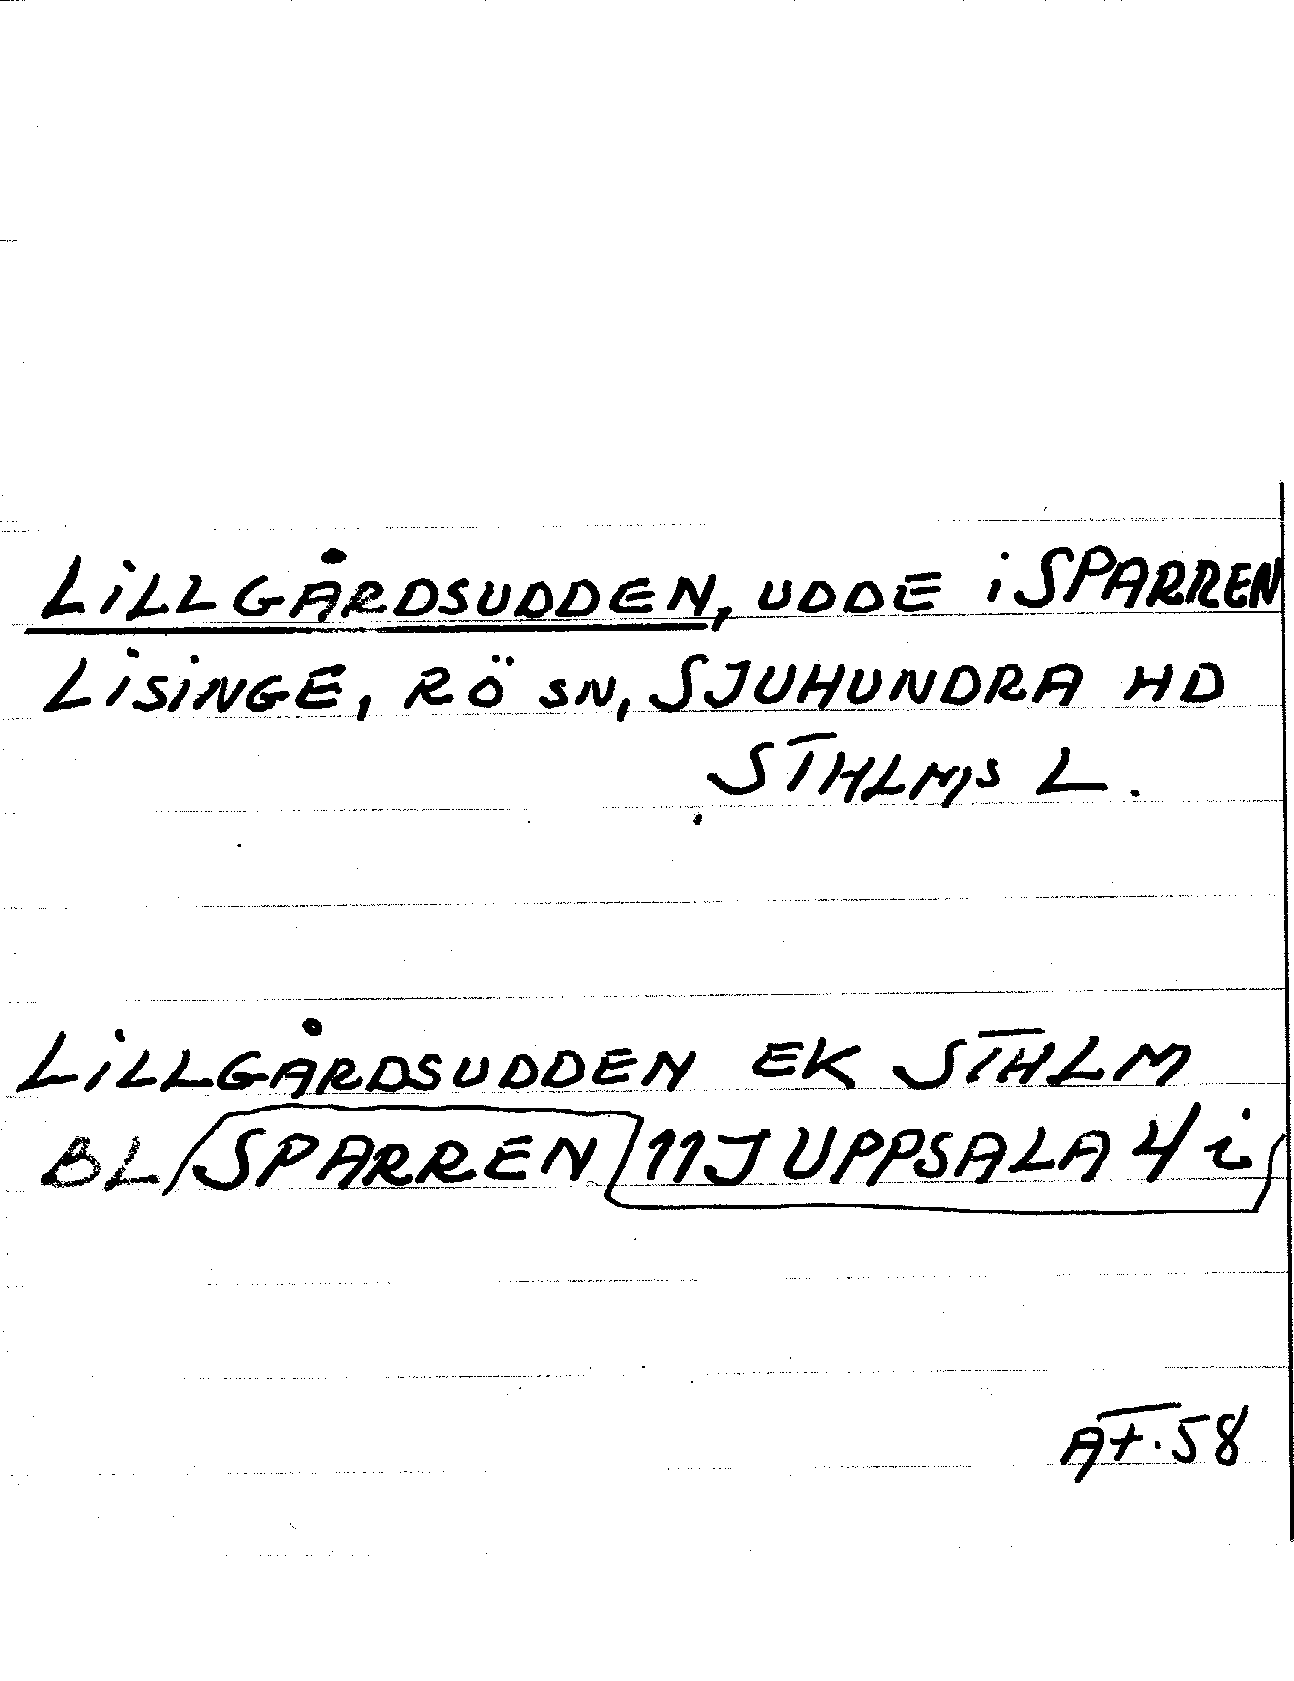 LILLGÅRDSUDDEN, UDDE i SPARREN
LISINGE, RÖ SN, SJUHUNDRA HD
STHLMS L.
LILLGÅRDSUDDEN EK STHLM
BL SPARREN 11J UPPSALA 4 i
AF. 58